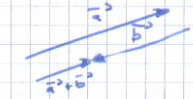 a⃗
b⃗
a⃗+b⃗